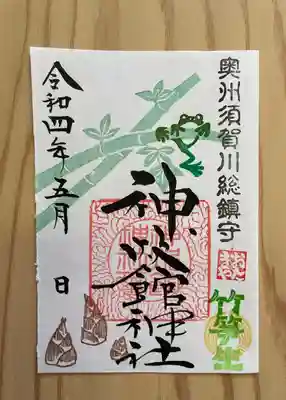 奥州須賀川総鎮守
竹笋生
神炊館神社
令和四年五月 日